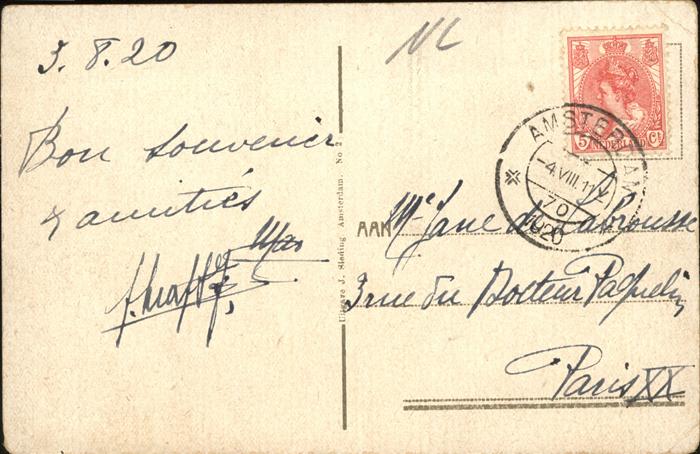 3.8.20
Bon souvenir
& amitiés
NL
5 Ct
NEDERLAND
AMSTERDAM
-4.VIII.11
1920
AAN Mlle Jane de Labrousse
3 rue du Docteur Paquelin
Paris XX
Uitgave J. Sleding Amsterdam. No 2